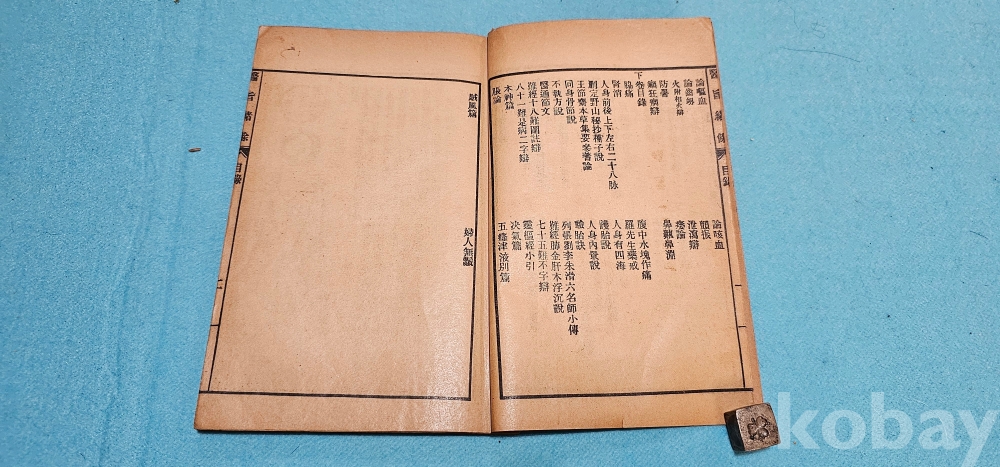 醫旨緒餘
目錄
論嘔血
論咳血
論齒衄
顫振
火附相火辯
泄瀉辯
防暑
痿論
癲狂癇辯
鼻鼽鼻淵
下卷目錄
腸痛
腹中水塊作痛
腎消
羅先生藥戒
人身前後上下左右二十八脉
人身有四海
刪定野山秘抄種子說
護胎說
王節齋本草集要參著論
人身內景說
同身骨節說
驗胎訣
不執方說
列張劉李朱滑六名師小傳
醫通節文
難經肺金肝木浮沉說
難經十八難圖註辯
七十五難不字辯
八十一難是病二字辯
靈樞經小引
本神篇
決氣篇
脹論
五癃津液別篇
賊風篇
婦人無鬚
醫旨緒餘
目錄
kobay